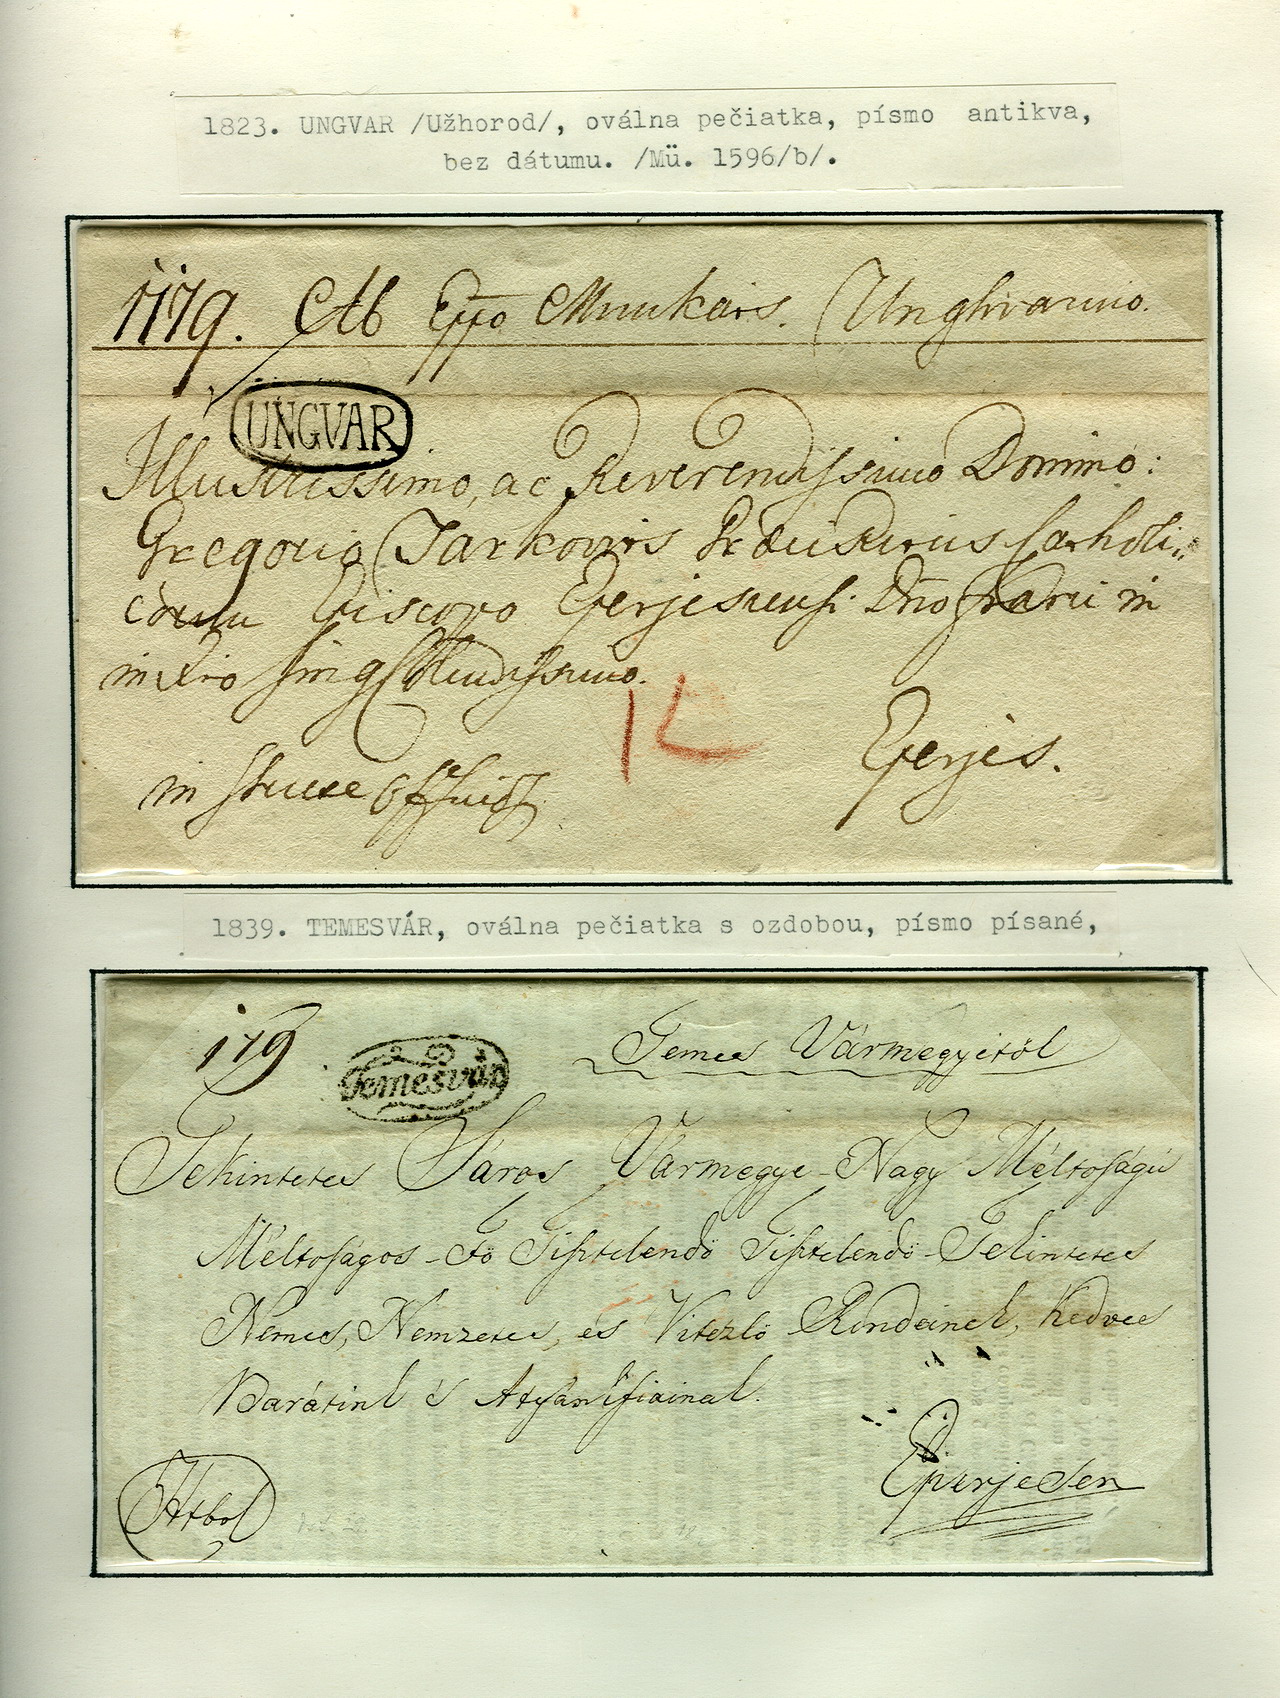 1823. UNGVAR /Užhorod/, oválna pečiatka, písmo antikva,
bez dátumu. /Mü. 1596/b/.
Ab Eppo Munkács. Unghvarino.
UNGVAR
Illustrissimo, ac Reverendissimo Domino:
Gregorio Tarkovits
Episcopo Eperjesiensi
Eperjes.
1839. TEMESVÁR, oválna pečiatka s ozdobou, písmo písané,
179
Temesvár
Temes Vármegyétöl
Tekintetes Sáros Vármegye Nagy Méltoságú
Méltoságos - Fö Tisztelendö Tisztelendö - Tekintetes
Nemes, Nemzetes, és Vitézlö Rendeinek, Kedves
Barátink s Atyánkfiainak.
Eperjesen